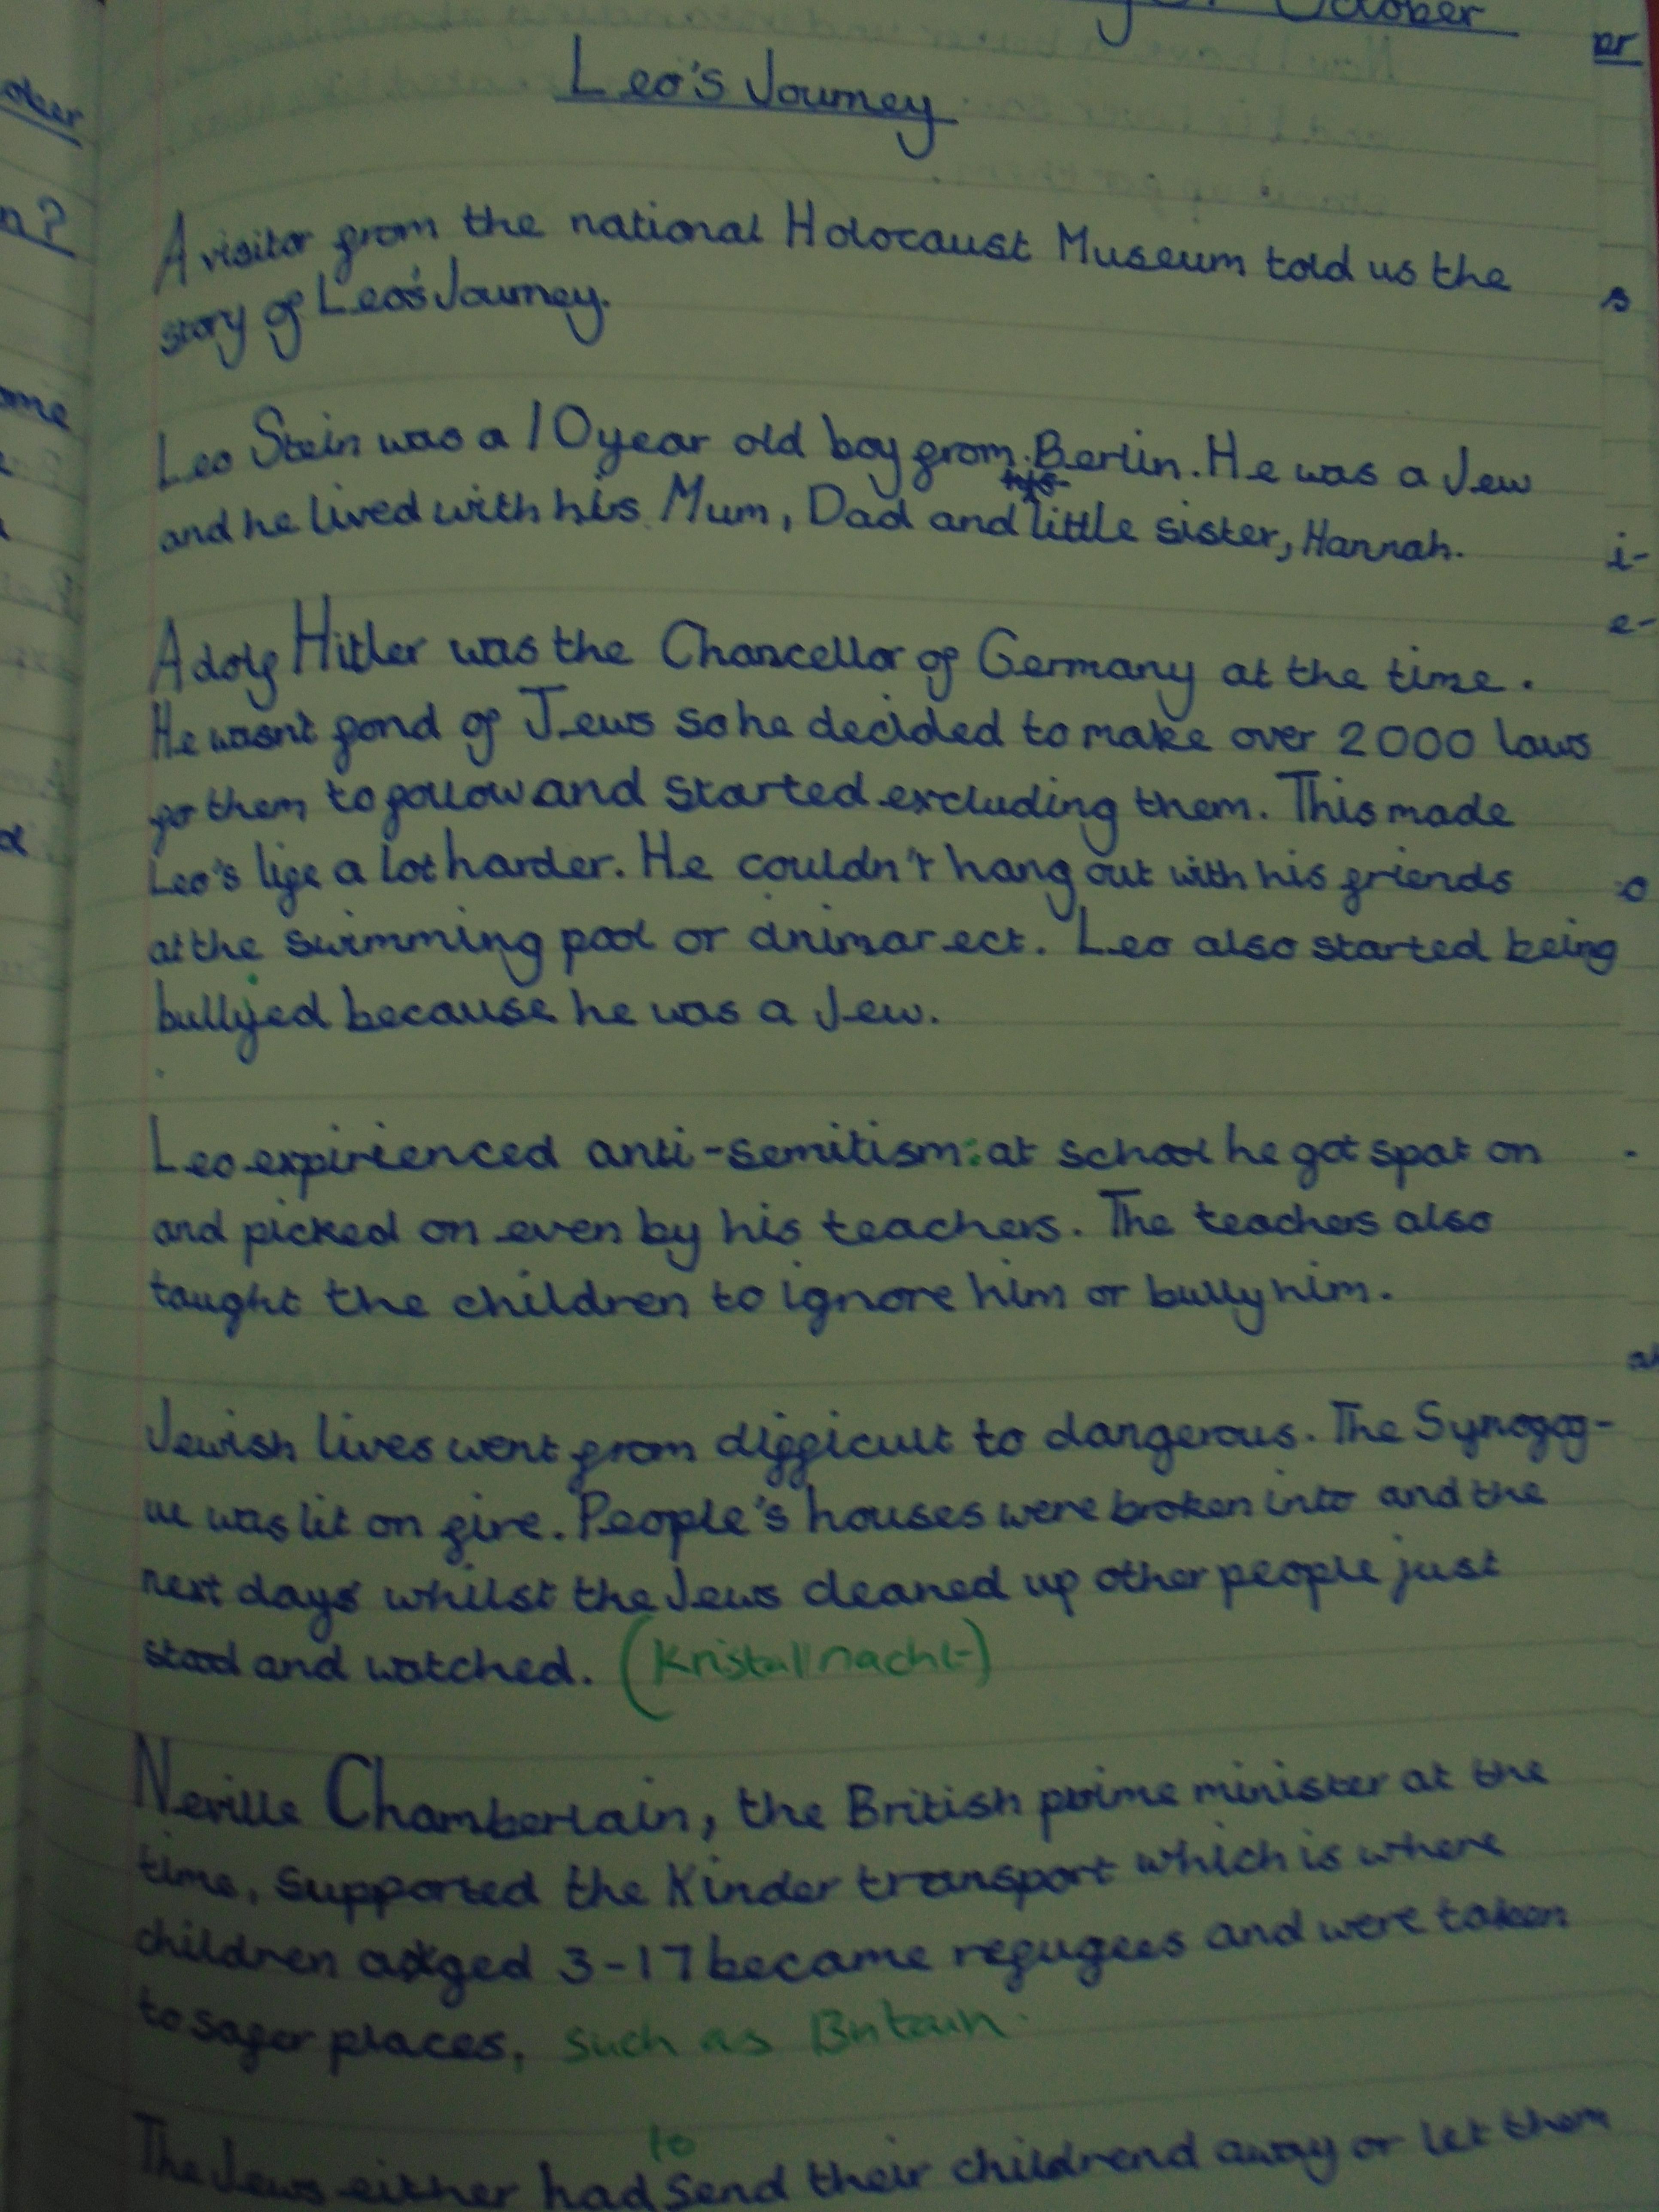 October
Leo's Journey
A visitor from the national Holocaust Museum told us the
story of Leo's Journey.
Leo Stein was a 10 year old boy from Berlin. He was a Jew
and he lived with his Mum, Dad and little sister, Hannah.
Adolf Hitler was the Chancellor of Germany at the time.
He wasn't fond of Jews so he decided to make over 2000 laws
for them to follow and started excluding them. This made
Leo's life a lot harder. He couldn't hang out with his friends
at the swimming pool or ect. Leo also started being
bullied because he was a Jew.
Leo expirienced anti-semitism: at school he got spat on
and picked on even by his teachers. The teachers also
taught the children to ignore him or bully him.
Jewish lives went from difficult to dangerous. The Synogog-
ue was lit on fire. People's houses were broken into and the
next days whilst the Jews cleaned up other people just
stood and watched. (Kristallnacht)
Neville Chamberlain, the British prime minister at the
time, supported the Kinder transport which is where
children adged 3-17 became refugees and were taken
to safer places, such as Britain.
The Jews either had to send their childrend away or let them